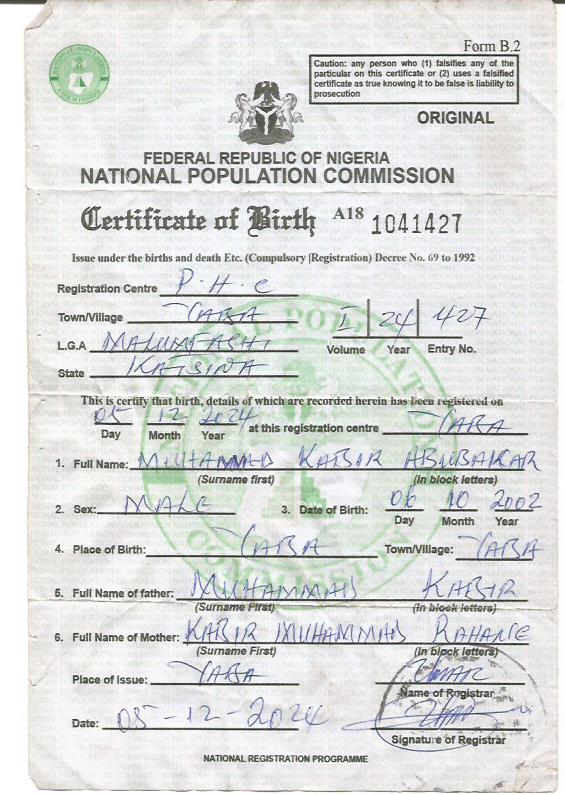 Form B.2
Caution: any person who (1) falsifies any of the
particular on this certificate or (2) uses a falsified
certificate as true knowing it to be false is liability to
prosecution
ORIGINAL
FEDERAL REPUBLIC OF NIGERIA
NATIONAL POPULATION COMMISSION
Certificate of Birth A18 1041427
Issue under the births and death Etc. (Compulsory |Registration) Decree No. 69 to 1992
Registration Centre P.H.C
Town/Village YABA
I 24 427
Volume Year Entry No.
L.G.A MALUMFASHI
State KATSINA
This is certify that birth, details of which are recorded herein has been registered on
05 12 2024 at this registration centre YABA
Day Month Year
1. Full Name: MUHAMMAD KABIR ABUBAKAR
(Surname first) (In block letters)
2. Sex: MALE 3. Date of Birth: 06 10 2002
Day Month Year
4. Place of Birth: YABA Town/Village: YABA
5. Full Name of father: MUHAMMAD KABIR
(Surname First) (In block letters)
6. Full Name of Mother: KABIR MUHAMMAD
(Surname First) (In block letters)
Place of Issue: YABA UMAR
Name of Registrar
Date: 05-12-2024
Signature of Registrar
NATIONAL REGISTRATION PROGRAMME